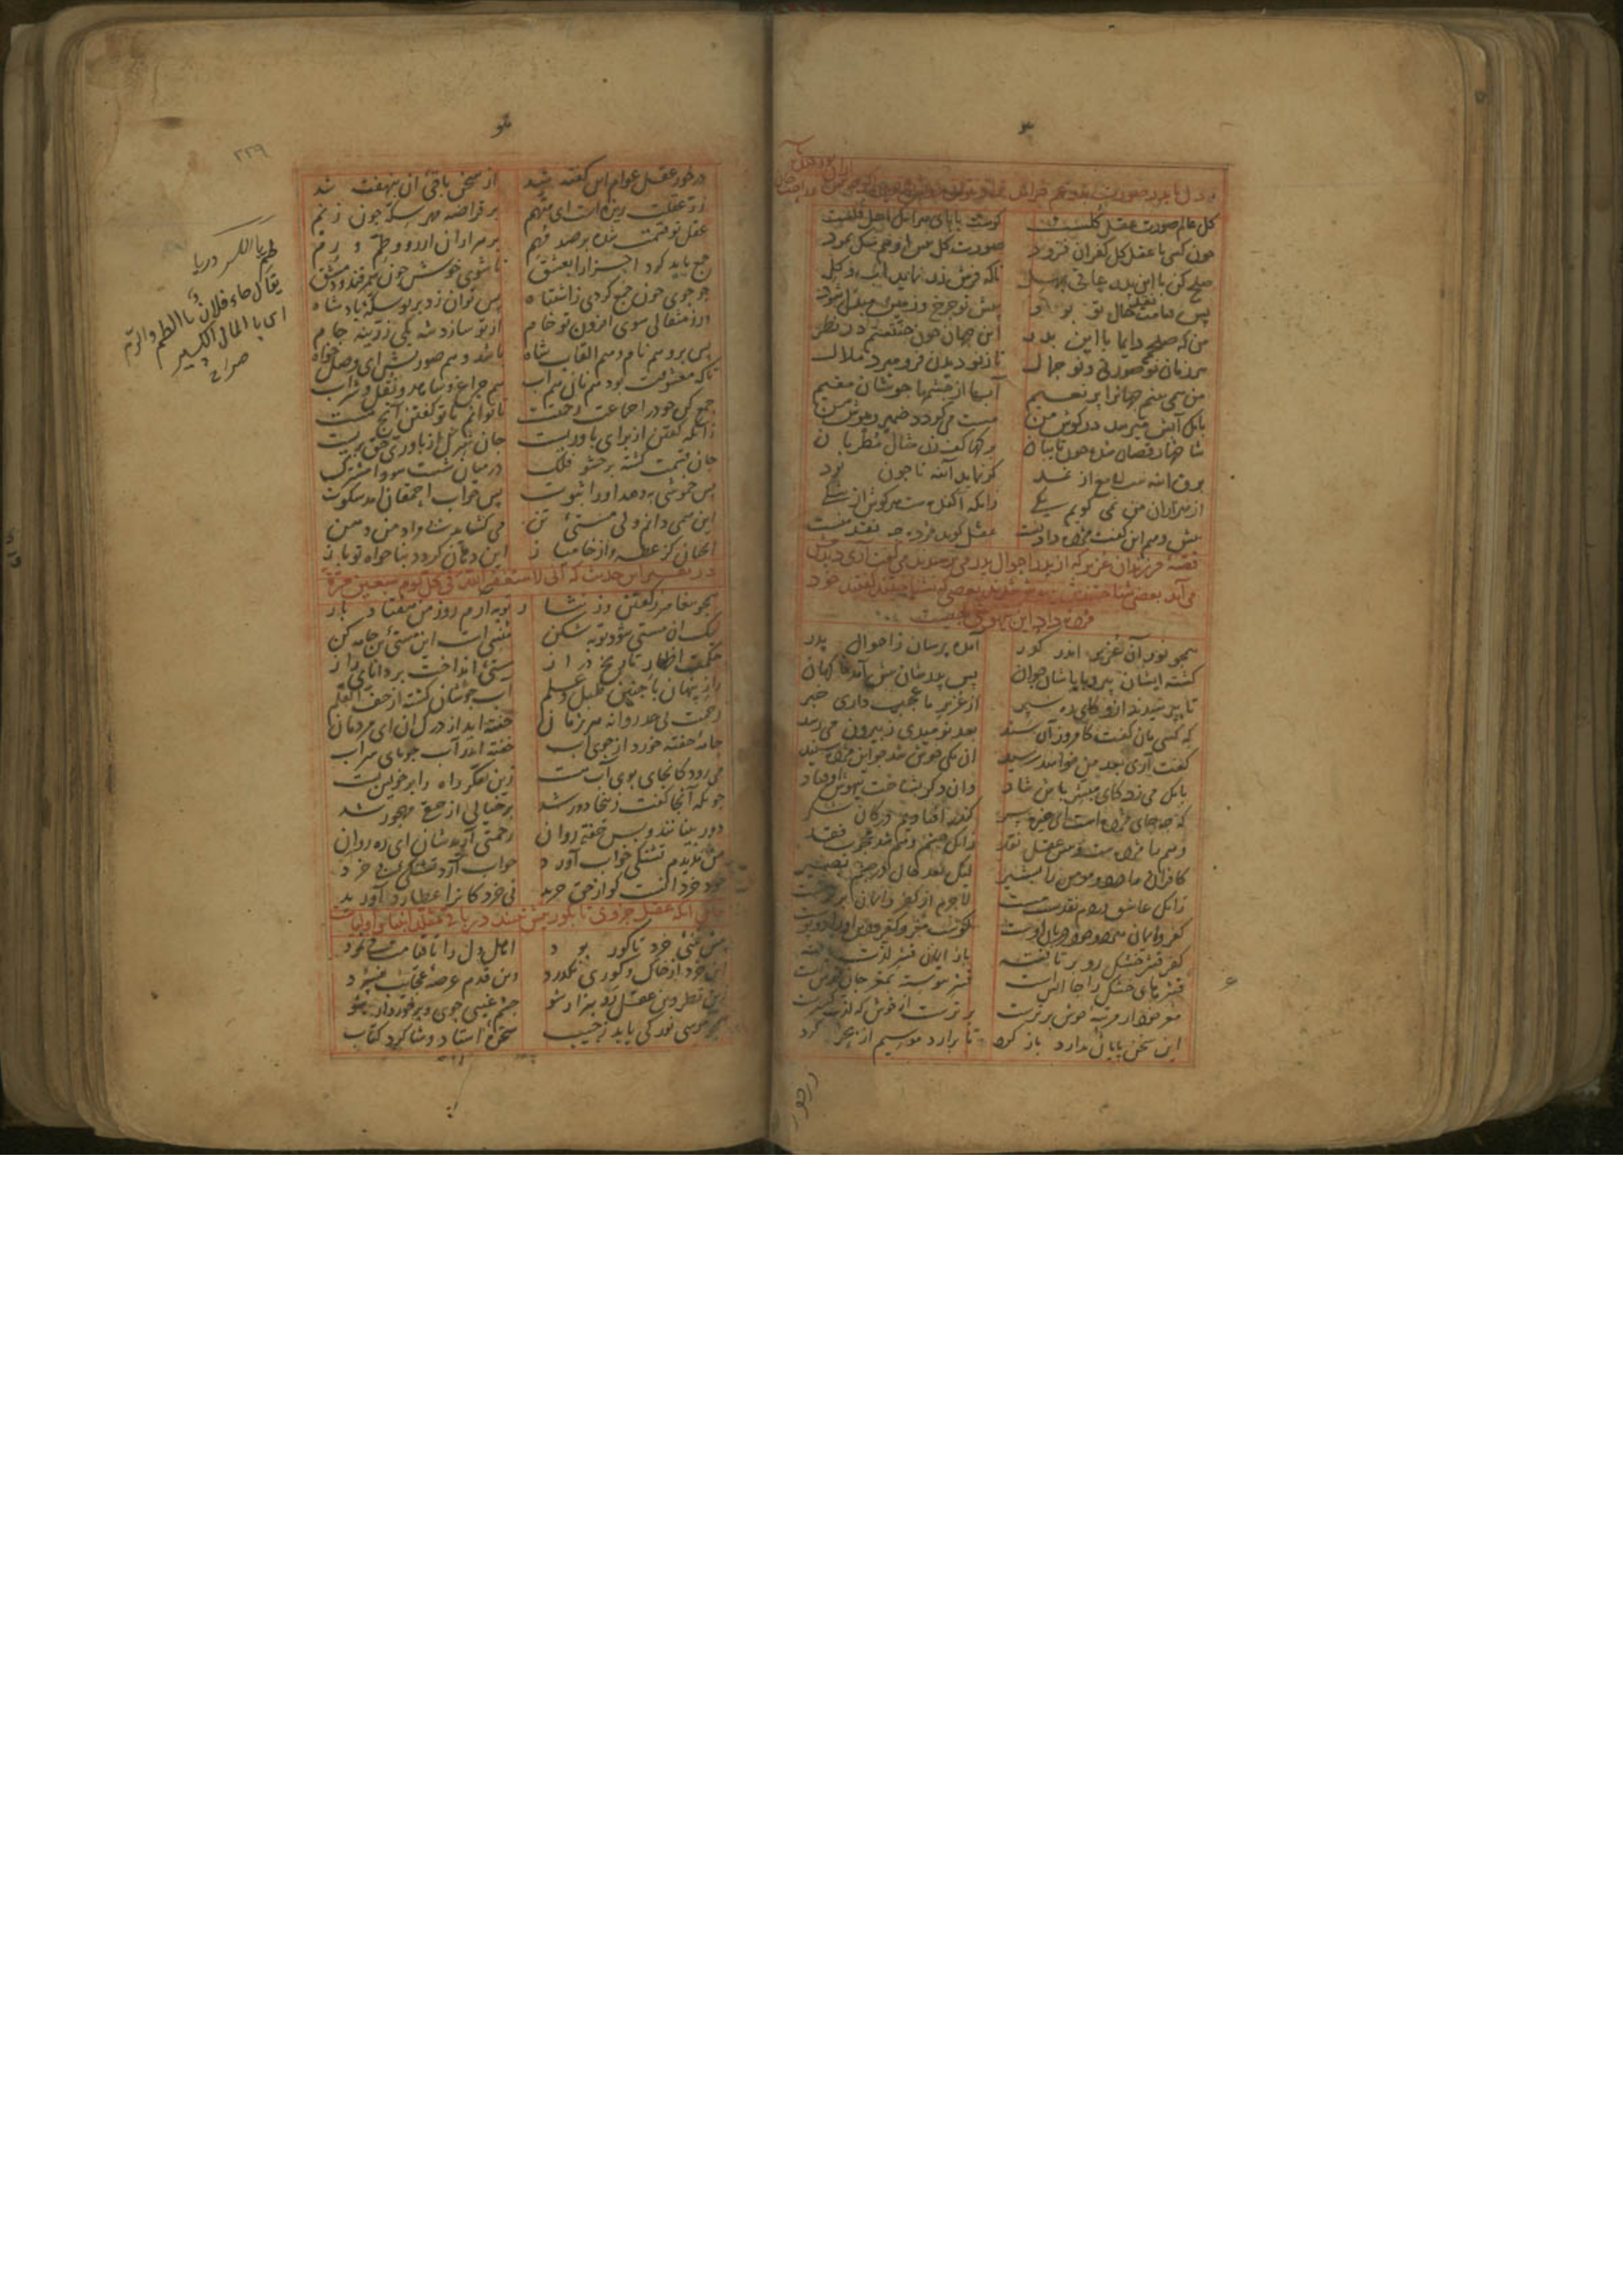 کل عالم صورت عقل کلست کوست بابای هر آنک اهل قلست
چون کسی با عقل کل کفران فزود صورت کل پیش او هم سگ نمود
صلح کن با این پدر عاقی بهل تاکه فرش زر نماید آب و کل
پس قیامت نقد حال تو بود پیش تو چرخ و زمین مبدل شود
من که صلحم دایما با این پدر این جهان چون جنتستم در نظر
هر زمان نو صورتی و نو جمال تا ز نو دیدن فرو میرد ملال
من همی بینم جهانرا پر نعیم آبها از چشمها جوشان مقیم
بانک آبش میرسد در کوش من مست می کردد ضمیر و هوش من
شاخها رقصان شده چون تایبان برکها کف زن مثال مطربان
برق آینه است لامع از نمد کر نماید آینه تا چون بود
از هزاران من نمی کویم یکی زانکه آکنده است هر کوش از شکی
پیش وهم این کفت مژده دادنست عقل کوید مژده چه نقد منست
قصه فرزندان عزیر که از پدر احوال پدر می پرسیدند می کفت آری دیدمش
می آید بعضی شناختندش بیهوش شدند بعضی که نشناختند کفتند خود
مژده داد این بیهوشی چیست
همچو پوران عزیر اندر کذر آمده پرسان ز احوال پدر
کشته ایشان پیر و باباشان جوان پس پدرشان پیش آمد ناکهان
پس بپرسیدند ازو کای ره کذر از عزیر ما عجب داری خبر
که کسی مان کفت کامروز آن سند بعد نومیدی ز بیرون می رسد
کفت آری بعد من خواهد رسید آن یکی خوش شد چو این مژده شنید
بانک می زد کای مبشر باش شاد وان دکر بشناخت بیهوش اوفتاد
که چه جای مژده است ای خیره سر که در افتادیم در کان شکر
وهم را مژده است و پیش عقل نقد زانکه چشم وهم شد محجوب فقد
کافران را درد و مومن را بشیر لیک نقد حال در چشم بصیر
زانک عاشق در دم نقدست مست لاجرم از کفر و ایمان برترست
کفر و ایمان هر دو خود دربان اوست کوست مغز و کفر و دین او را دو پوست
کفر قشر خشک رو بر تافته باز ایمان قشر لذت یافته
قشرهای خشک را جا آتش است قشر پیوسته بمغز جان خوش است
مغز خود از مرتبه خوش برترست برترست از خوش که لذت کسترست
این سخن پایان ندارد باز کرد تا برآرد موسیم از بحر کرد
درخور
۲۲۹
درخور عقل عوام این کفته شد از سخن باقی آن بنهفته شد
زر عقلت ریزه است ای متهم بر قراضه مهر سکه چون زنم
عقل تو قسمت شده بر صد مهم بر هزاران آرزو و طم و رم
جمع باید کرد اجزا را بعشق تا شوی خوش چون سمرقند و دمشق
جو جوی چون جمع کردی ز اشتباه پس توان زد بر تو سکه پادشاه
ور ز مثقالی شوی افزون تو خام از تو سازد شه یکی زرینه جام
پس برو هم نام و هم القاب شاه باشد و هم صورتش ای وصل خواه
تاکه معشوقت بود هم نان هم آب هم چراغ و شاهد و نقل و شراب
جمع کن خود را جماعت رحمت است تا توانم با تو کفتن آنچ هست
زانکه کفتن از برای باوریست جان شرک از باوری حق بریست
جان قسمت کشته بر حشو فلک در میان شصت سودا مشترک
پس خموشی به دهد او را ثبوت پس جواب احمقان آمد سکوت
این همی دانم ولی مستی تن می کشاید بی مراد من دهن
آنچنان کز عطسه و از خامیاز این دهان کردد بناخواه تو باز
در تفسیر این حدیث که انی لاستغفر الله فی کل یوم سبعین مرة
همچو پیغامبر ز کفتن وز نثار توبه آرم روز من هفتاد بار
لیک آن مستی شود توبه شکن منسی است این مستی تن جامه کن
حکمت اظهار تاریخ دراز مستیی انداخت بر دانای راز
راز پنهان با چنین طبل و علم آب جوشان کشته از جف القلم
رحمت بی حد روانه هر زمان خفته اید از درک آن ای مردمان
جامه خفته خورد از جوی آب خفته اندر آب جویای سراب
می رود کانجای بوی آب هست زین تفکر راه را بر خویش بست
چونکه آنجا کفت زینجا دور شد بر خیالی از حقی مهجور شد
دور بینانند و بس خفته روان رحمتی آریدشان ای ره روان
من ندیدم تشنکی خواب آورد خواب آرد تشنکی بی خرد
خود خرد آنست کو از حق چرید نی خرد کانرا عطارد آورید
بیان آنکه عقل جزوی تا بکور بیش نبیند در باقی مقلد انبیا و اولیاست
پیش بینی خرد تا کور بود اهل دل را تا قیامت می نمود
این خرد از خاک و کوری نکذرد وین قدم عرصه عجایب نسپرد
زین نظر وین عقل رو بیزار شو چشم غیبی جوی و برخوردار شو
همچو موسی نور کی یابد ز جیب سخره استاد و شاکرد کتاب
طم بالکسر دریا
یقال جاء فلان باالطم والرم
ای با المال الکثیر
صراح